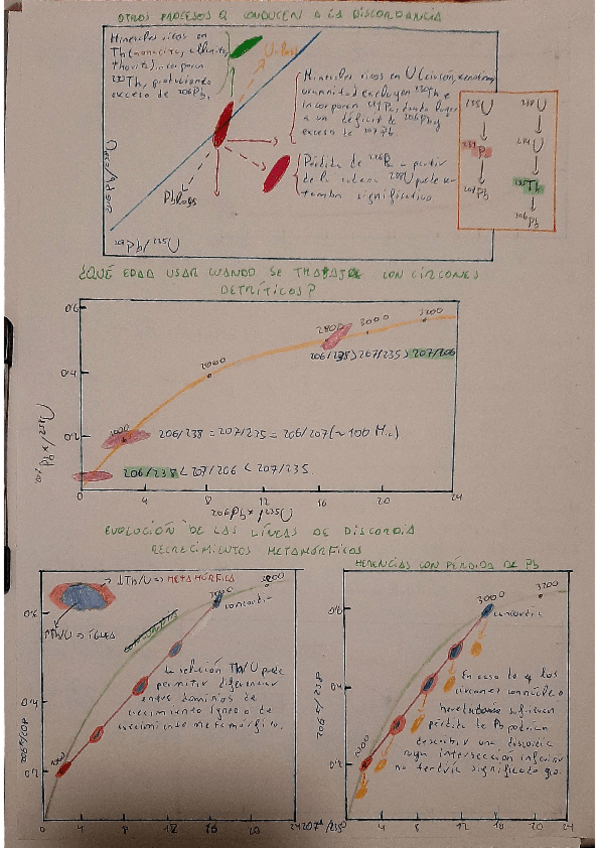 OTROS PROCESOS Q CONDUCEN A LA DISCORDANCIA
Minerales ricos en
Th (monacita, allanita,
thorita), incorporan
²³⁰Th, produciendo
exceso de ²⁰⁶Pb.
U-loss
Pb loss
Minerales ricos en U (circón, xenotima,
uraninita) excluyen ²³⁰Th e
incorporan ²³¹Pa, dando lugar
a un déficit de ²⁰⁶Pb y
exceso de ²⁰⁷Pb
Pérdida de a partir
de la cadena ²³⁸U puede ser
también significativo
²³⁵U
²³¹Pa
²⁰⁷Pb
²³⁸U
²³⁴U
²³⁰Th
²⁰⁶Pb
¿QUÉ EDAD USAR CUANDO SE TRABAJE CON CIRCONES
DETRÍTICOS?
0'6
0'4
0'2
0
4
8
12
16
20
24
1000
2000
2800
3000
3200
206/238 > 207/235 > 207/206
206/238 = 207/235 = 206/207 (~100 Ma)
206/238 < 207/206 < 207/235.
206Pb*/235U
EVOLUCIÓN DE LAS LÍNEAS DE DISCORDIA
RECRECIMIENTOS METAMÓRFICOS
↓Th/U => METAMÓRFICA
↑Th/U => ÍGNEA
concordia
3000
3200
La relación Th/U puede
permitir diferenciar
entre dominios de
crecimiento ígneo o de
crecimiento metamórfico.
0'6
0'4
0'2
0
4
8
12
16
20
24
207*/235
HERENCIAS CON PÉRDIDA DE Pb
3000
3200
concordia
En caso de q los
circones con núcleo
heredado sufrieran
pérdida de Pb podrían
describir una discordia
cuya intersección inferior
no tendría significado geo.
0'6
0'4
0'2
0
4
8
12
16
20
24